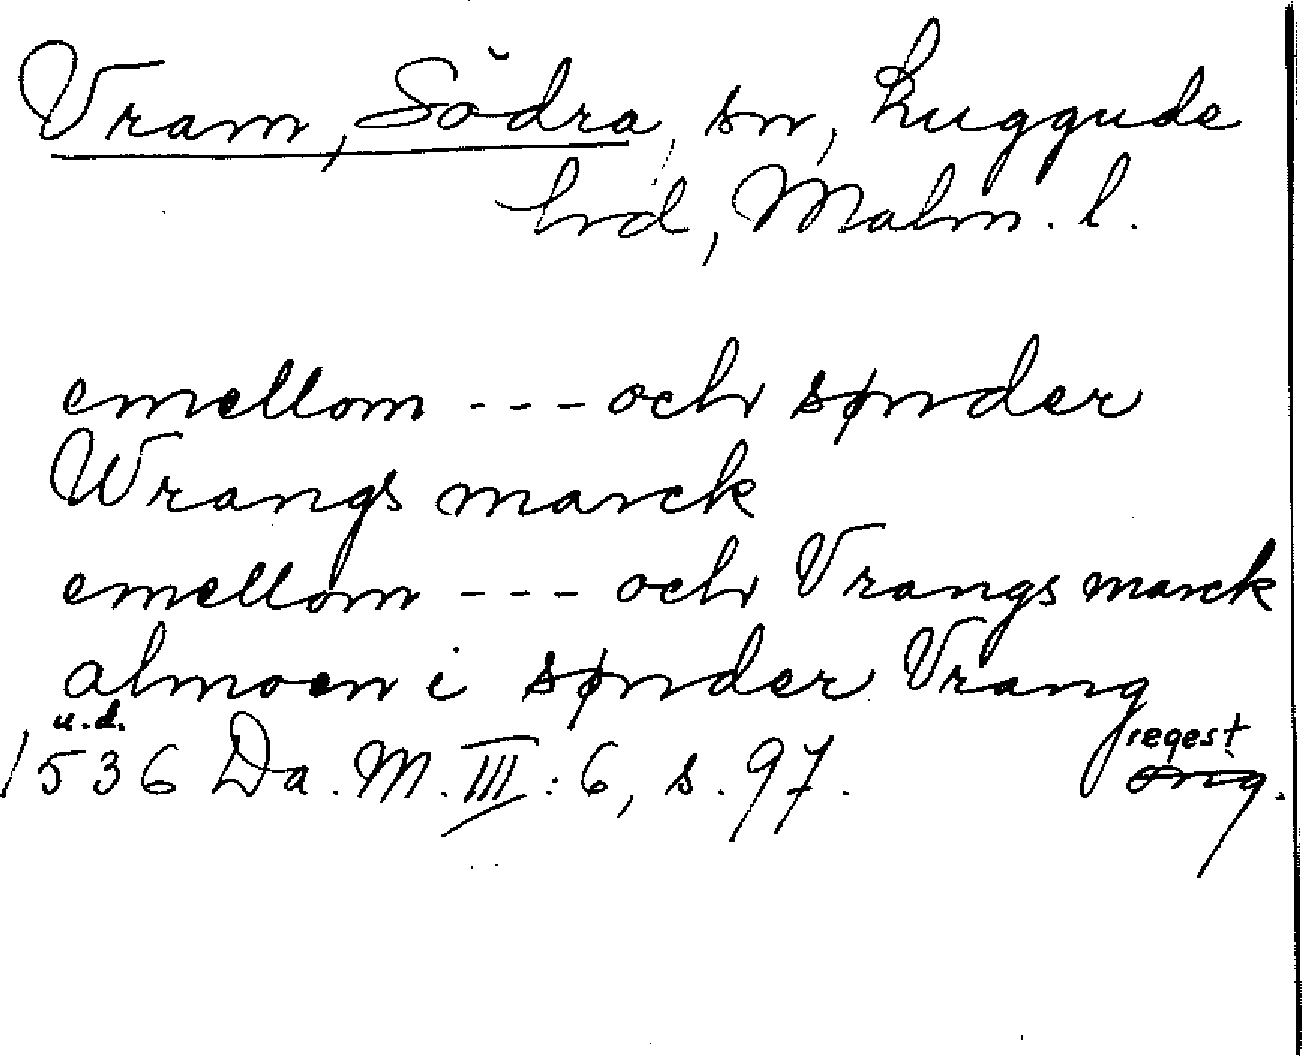 Vram, Södra, sn, Luggude
hd, Malm. l.
emellom --- och sønder
Wrangs marck
emellom --- och Vrangs marck
almoen i sønder Vrang
u.d. regest
1536 Da. M. III: 6, s. 97. orig.